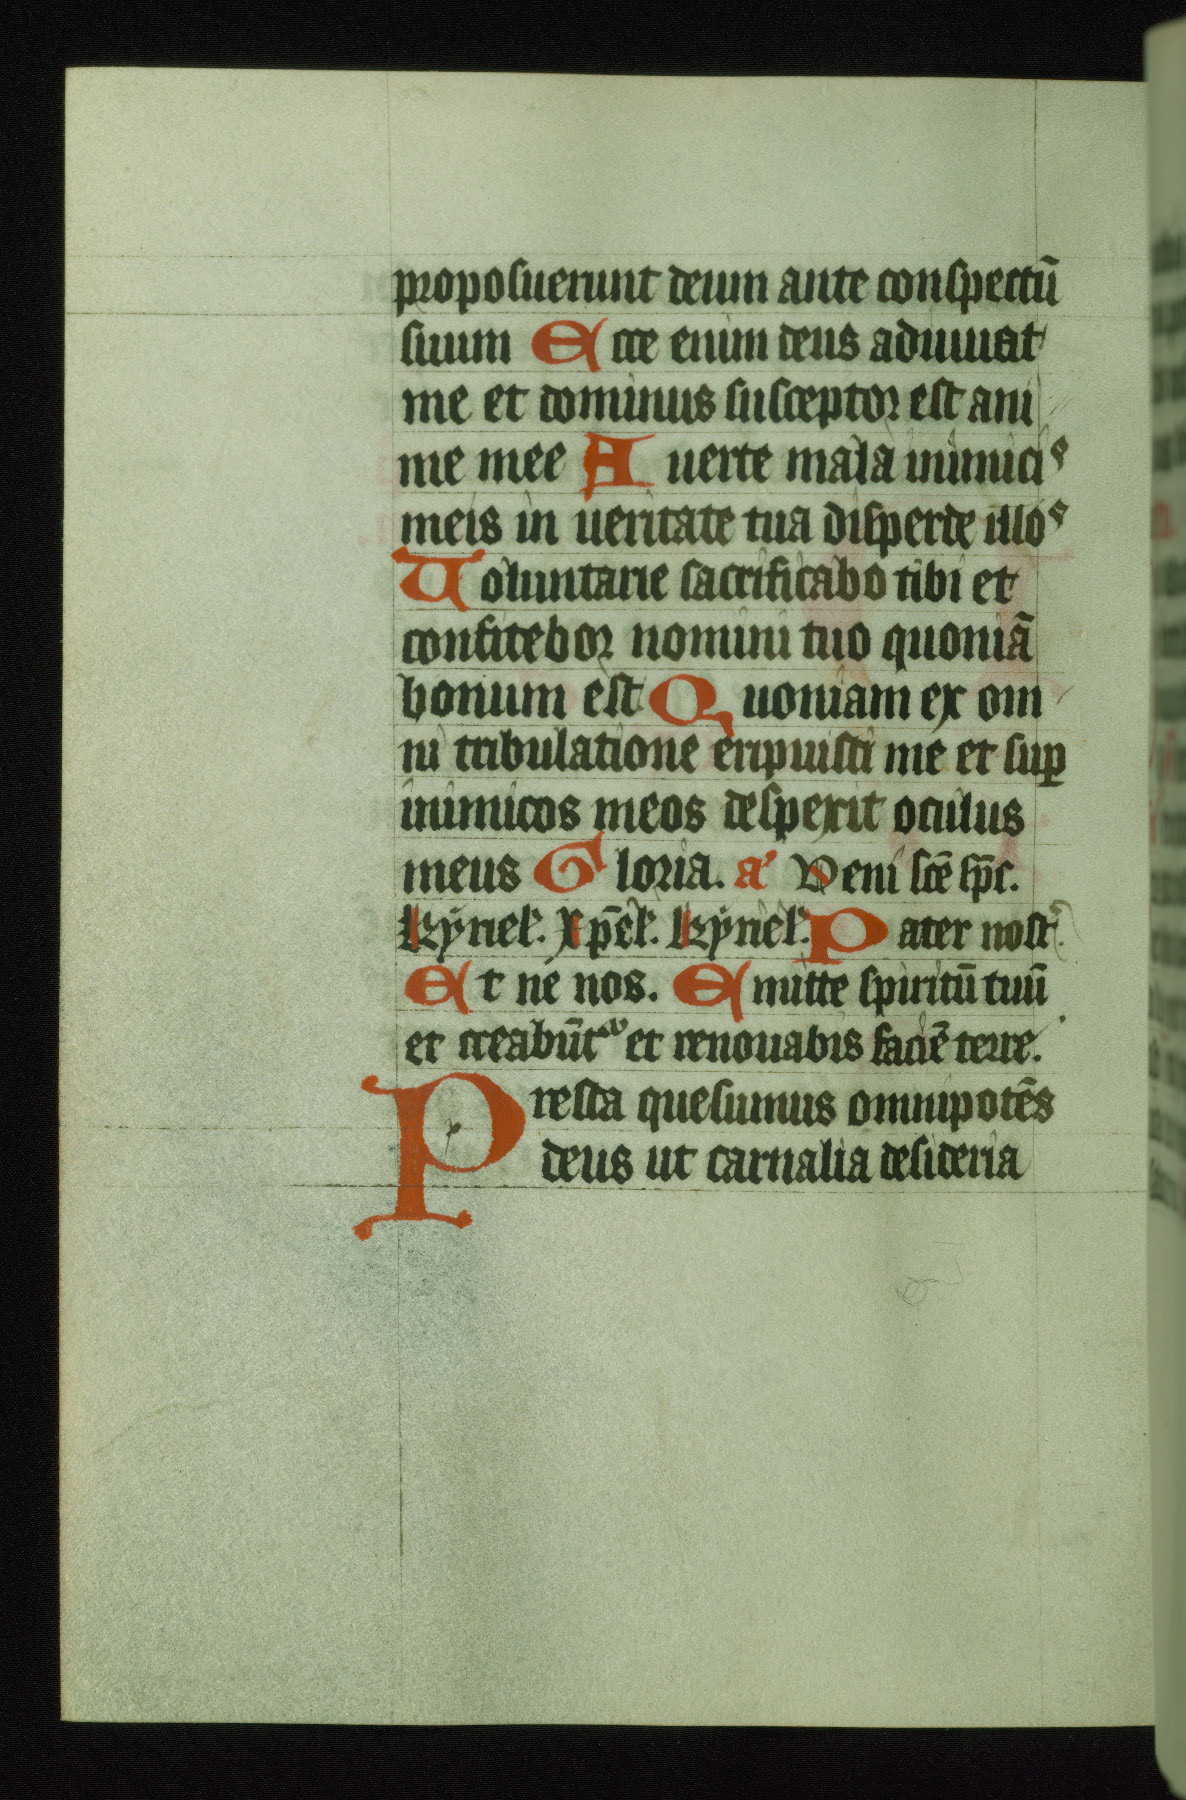 proposuerunt deum ante conspectū
suum Ecce enim deus adiuuat
me et dominus susceptor est ani
me mee Auerte mala inimicis
meis in ueritate tua disperde illos
Uoluntarie sacrificabo tibi et
confitebor nomini tuo quoniā
bonum est Quoniam ex om
ni tribulatione eripuisti me et suꝑ
inimicos meos despexit oculus
meus Gloria. a᷒ Veni scē sp̄c.
kyriel᷒. xp̄el᷒. kyriel᷒. Pater nost᷒.
Et ne nos. Emitte spiritū tuū
et creabūt᷒ et renouabis faciē terre.
Presta quesumus omnipotēs
deus ut carnalia desideria